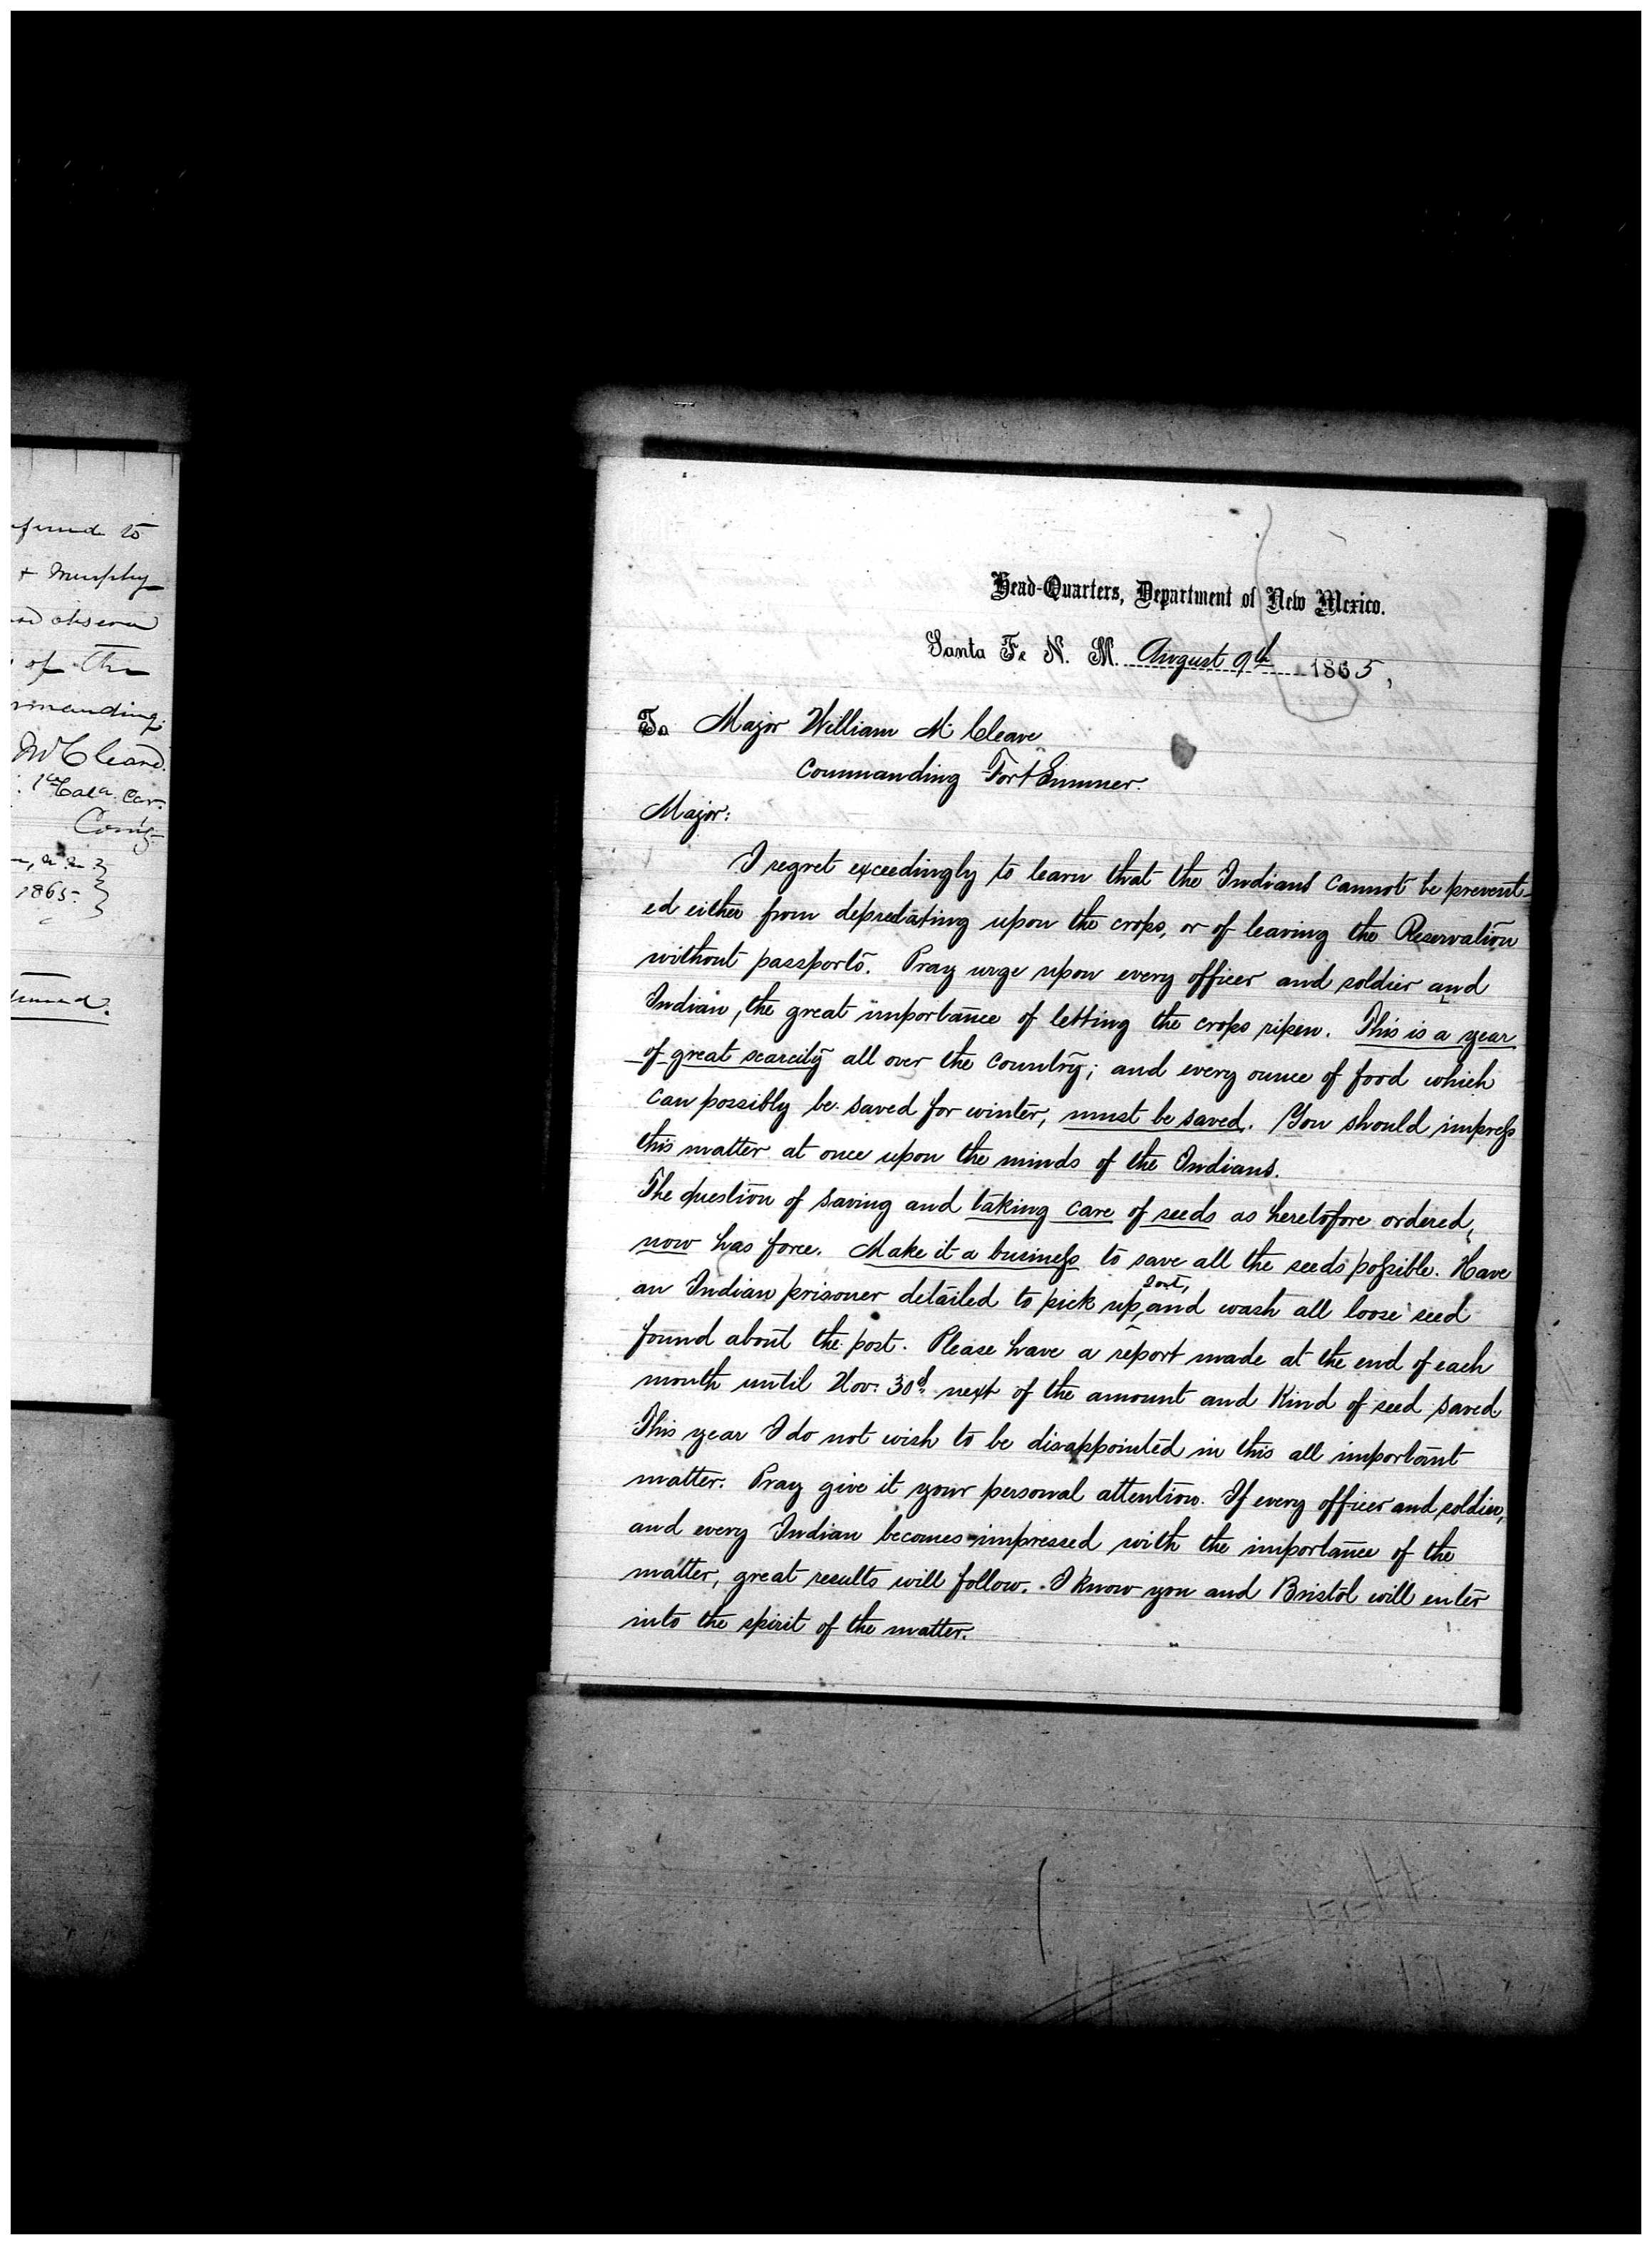 efered to
& Murphy
and observe
of the
ommanding.
McCleave.
1st Cala. Cav.
Com'g
1865.
Head-Quarters, Department of New Mexico.
Santa Fe N. M. August 9th 1865,
To Major William McCleave
Commanding Fort Sumner.
Major:
I regret exceedingly to learn that the Indians cannot be prevent-
ed either from depredating upon the crops, or of leaving the Reservation
without passports. Pray urge upon every officer and soldier and
Indian, the great importance of letting the crops ripen. This is a year
of great scarcity all over the country; and every ounce of food which
can possibly be saved for winter, must be saved. You should impress
this matter at once upon the minds of the Indians.
The question of saving and taking care of seeds as heretofore ordered,
now has force. Make it a business to save all the seeds possible. Have
an Indian prisoner detailed to pick up, sort, and wash all loose seed
found about the post. Please have a report made at the end of each
month until Nov. 30d next of the amount and kind of seed saved
This year I do not wish to be disappointed in this all important
matter. Pray give it your personal attention. If every officer and soldier,
and every Indian becomes impressed with the importance of the
matter, great results will follow. I know you and Bristol will enter
into the spirit of the matter.